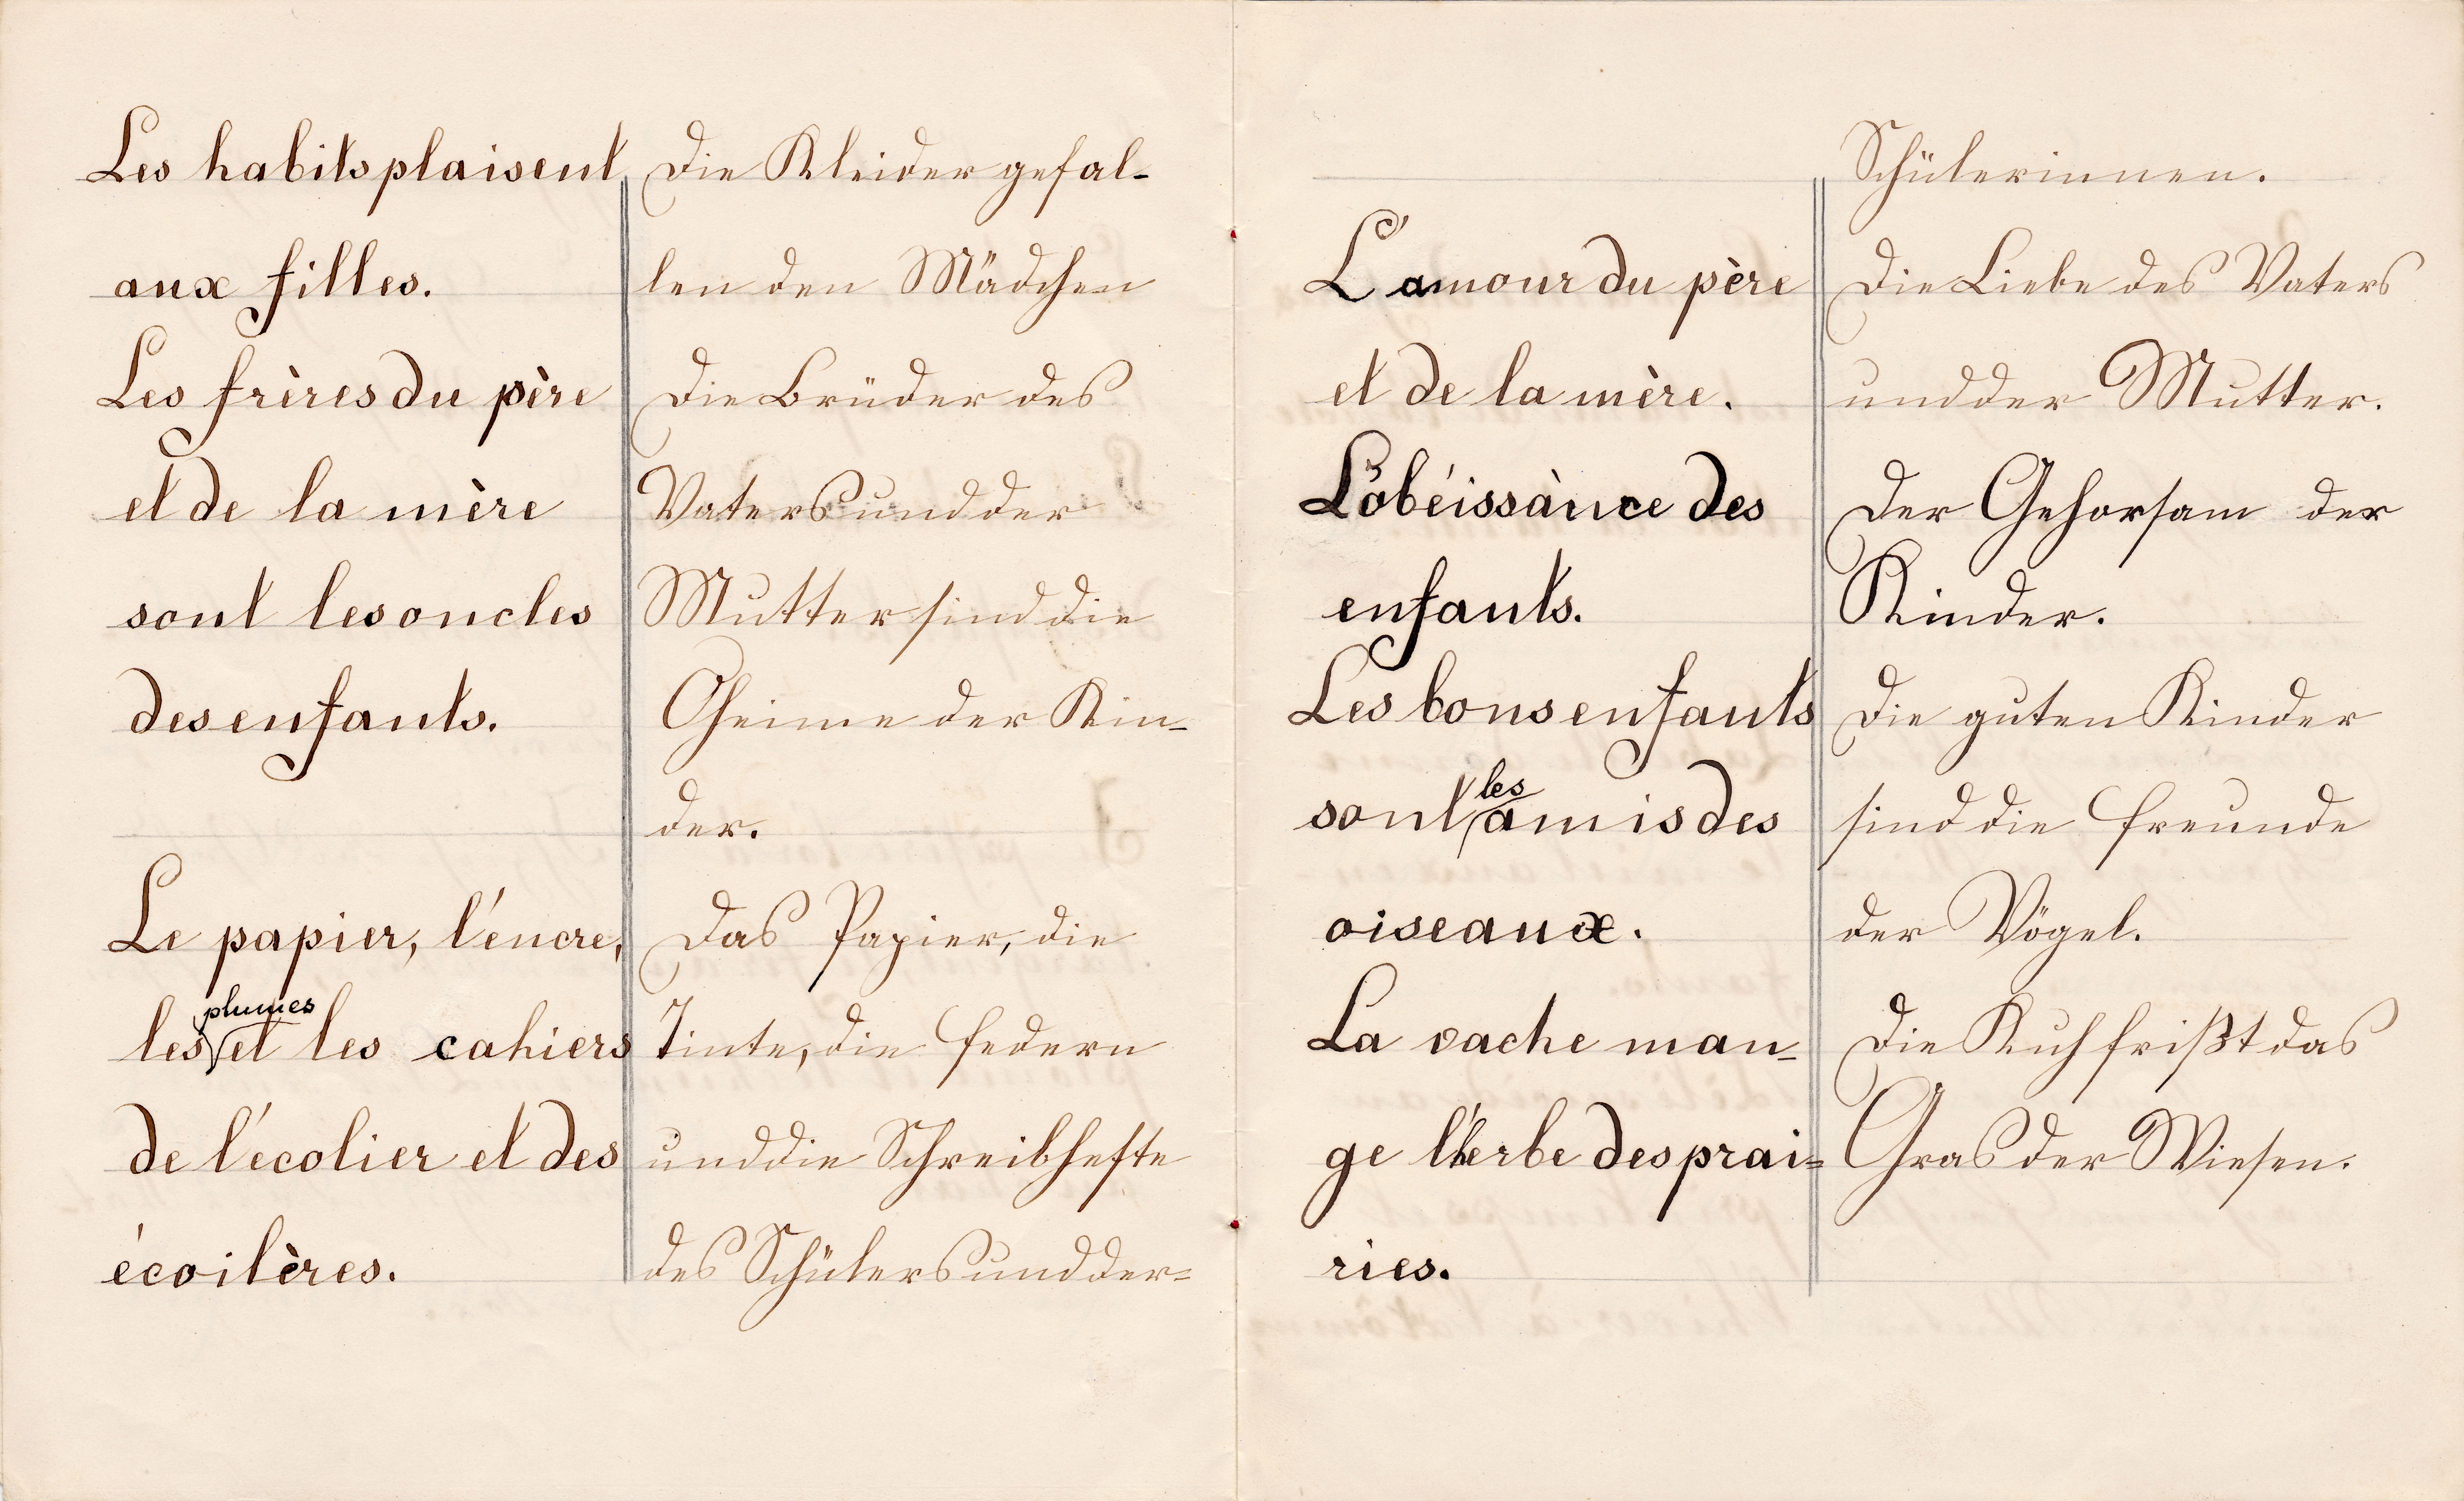 Les habits plaisent
aux filles.
Les frères du père
et de la mère
sont les oncles
des enfants.
Le papier, l'encre,
plumes
les et les cahiers
de l'écolier et des
écoilères.
Die Kleider gefal-
len den Mädchen
Die Brüder des
Vaters und der
Mutter sind die
Oheime der Kin-
der.
Das Papier, die
Tinte, die Federn
und die Schreibhefte
des Schülers und der=
L'amour du père
et de la mère.
L'obéissànce des
enfants.
Les bons enfants
les
sont amis des
oiseaux.
La vache man=
ge l'herbe des prai=
ries.
Schülerinnen.
Die Liebe des Vaters
und der Mutter.
Der Gehorsam der
Kinder.
Die guten Kinder
sind die Freunde
der Vögel.
Die Kuh frißt das
Gras der Wiesen.